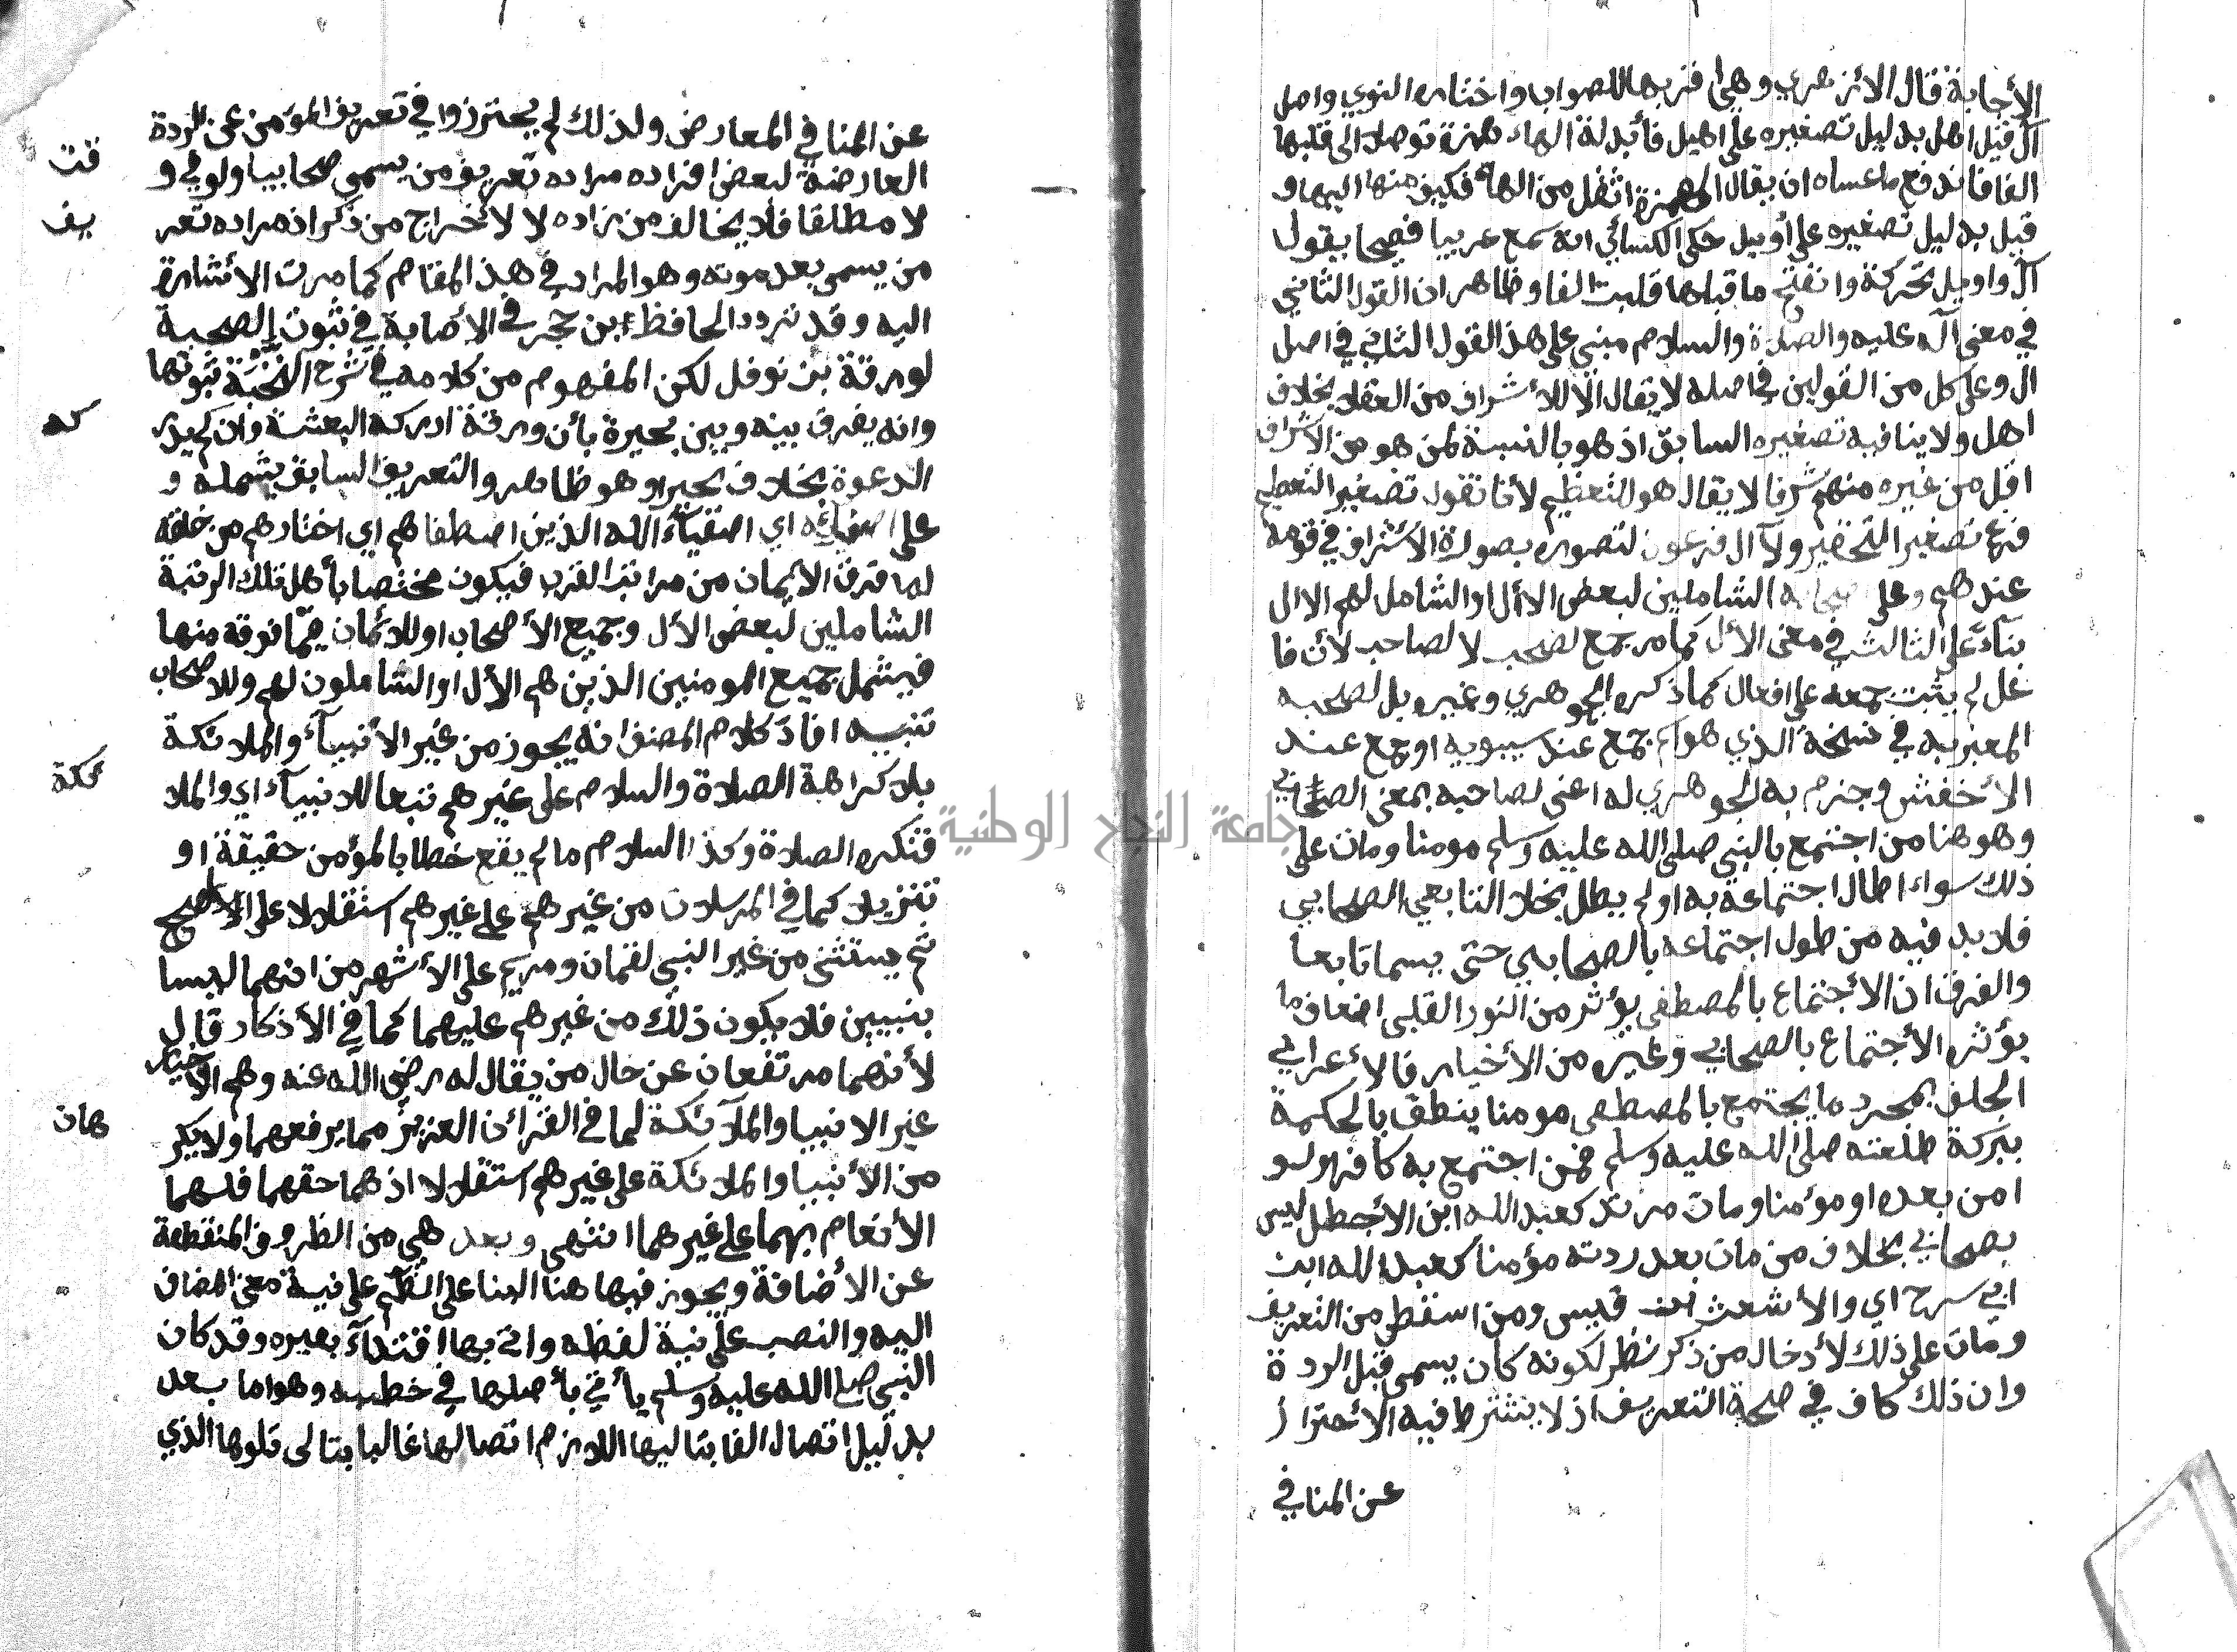 الأجابة قال الأزهري وهي أقربها للصواب واختاره النووي واصل
آل قيل اهل بدليل تصغيره على اهيل فأبدلة الهاء همزة توصلا الى قلبها
الفا فاندفع ما عساه ان يقال الهمزة اثقل من الهاء فكيف منها اليها و
قيل بدليل تصغيره على أويل حكى الكسائي انه سمع عربيا فصيحا يقول
آل واويل تحركة وانفتح ما قبلها قلبت الفا وظاهر ان القول الثاني
في معنى آله عليه والصلاة والسلام مبني على هذا القول الثاني في اصل
ال وعلى كل من القولين في اصله لا يقال الا للأشراف من العقلا بخلاف
اهل ولا ينافيه تصغيره السابق اذ هو بالنسبة لمن هو من الأشراف
اقل من غيره منهم شرفا لا يقال هو للتعظيم لأنا نقول تصغير التعظيم
فرع تصغير التحقير ولا آل فرعون لتصوره بصورة الأشراف في قومه
عندهم وعلى صحابه الشاملين لبعض الأل والشامل لهم الال
بناءً على الثالث في معنى الأل كما مر جمع لصحب لا لصاحب لأن فا
عل لم يثبت جمعه على افعال كما ذكره الجوهري وغيره بل لصحب
المعبر به في نسخة الذي هو اسم جمع عند سيبويه او جمع عند
الأخفش وجزم به الجوهري له اعني لصاحبه بمعنى الصحابي
وهو هنا من اجتمع بالنبي صلى الله عليه وسلم مومنا ومات على
ذلك سواء اطال اجتماعه به او لم يطل بخلا التابعي الصحابي
فلا بد فيه من طول اجتماعه بالصحابي حتى يسما تابعا
والفرق ان الأجتماع بالمصطفى يؤثر من النور القلبي اضعاف ما
يؤثره الأجتماع بالصحابي وغيره من الأخيار فالأعرابي
الجلف بمجرد ما يجتمع بالمصطفى مومنا ينطق بالحكمة
ببركة طلعته صلى الله عليه وسلم فمن اجتمع به كافرا ولو
امن بعده او مؤمنا ومات مرتد كعبد الله ابن الأخطل ليس
بصحابي بخلاف من مات بعد ردته مؤمنا كعبد الله ابن
ابي سرح اي والأشعث ابن قيس ومن اسقط من التعريف
ومات على ذلك لأدخال من ذكر نظر لكونه كان يسمى قبل الردة
وان ذلك كاف في صحة التعريف اذ لا يشترط فيه الأحترا ز
عن المنافي
عن المنافي المعارض ولذلك لم يحترزوا في تعريف المؤمن عن الردة
العارضة لبعض افراده مراده تعريف من يسمى صحابيا ولو في و قت
لا مطلقا فلا يخالف من زاده لا لأخراج من ذكر اذ مراده تعر يف
من يسمى بعد موته وهو المراد في هذ المقام كما مرت الأشارة
اليه وقد تردد الحافظ بن حجر في الأصابة في ثبوت الصحبة
لورقة بن نوفل لكن المفهوم من كلامه في شرح النخبة ثبوتها
وانه يفرق بينه وبين بحيرة بأن ورقة ادركه البعثة وان لم يدر كه
الدعوة بخلاف بحيرا وهو ظاهر والتعريف السابق يشمله و
على اصفيائه اي اصفياء الله الذين اصطفاهم اي اختارهم من خلقه
لما فرق الأيمان من مراتب القرب فيكون مختصا بأهل تلك الرتبة
الشاملين لبعض الأل وجميع الأصحاب او للأيمان فما فوقه منها
فيشمل جميع المومنين الذين هم الأل او الشاملون لهم وللاصحاب
تنبيه افاد كلام المصنف انه يجوز من غير الأنبياء والملائكة
بلا كراهة الصلاة والسلام على غيرهم تبعا للانبياء اي والملا ئكة
فتكره الصلاة وكذا السلام ما لم يقع خطابا لمؤمن حقيقة او
تنزيلا كما في المرسلات من غيرهم على غيرهم استقلالا على الأصح
ثم يستثنى من غير النبي لقمان ومريم على الأشهر من انهما ليسا
بنبيين فلا يكون ذلك من غيرهم عليهما كما في الأذكار قال
لأنهما مرتفعان عن حال من يقال له رضي الله عنه وهم الأخيار
غير الانبيا والملآئكة لما في القرائن العزيز مما يرفعهما ولا يكر هان
من الأنبيا والملائكة على غيرهم استقلالا اذ هما حقهما فلهما
الأنعام بهما على غيرهما انتهى وبعد هي من الظروف المنقطعة
عن الأضافة ويجوز فيها هنا البنا على الضم على نية معنى المضاف
اليه والنصب على نية لفظه واتى بها اقتداءً بغيره وقد كان
النبي صلى الله عليه وسلم يأتي بأصلها في خطبه وهو اما بعد
بدليل اتصال الفا بتاليها اللازم اتصالها غالبا بتالي تلوها الذي
جامعة النجاح الوطنية